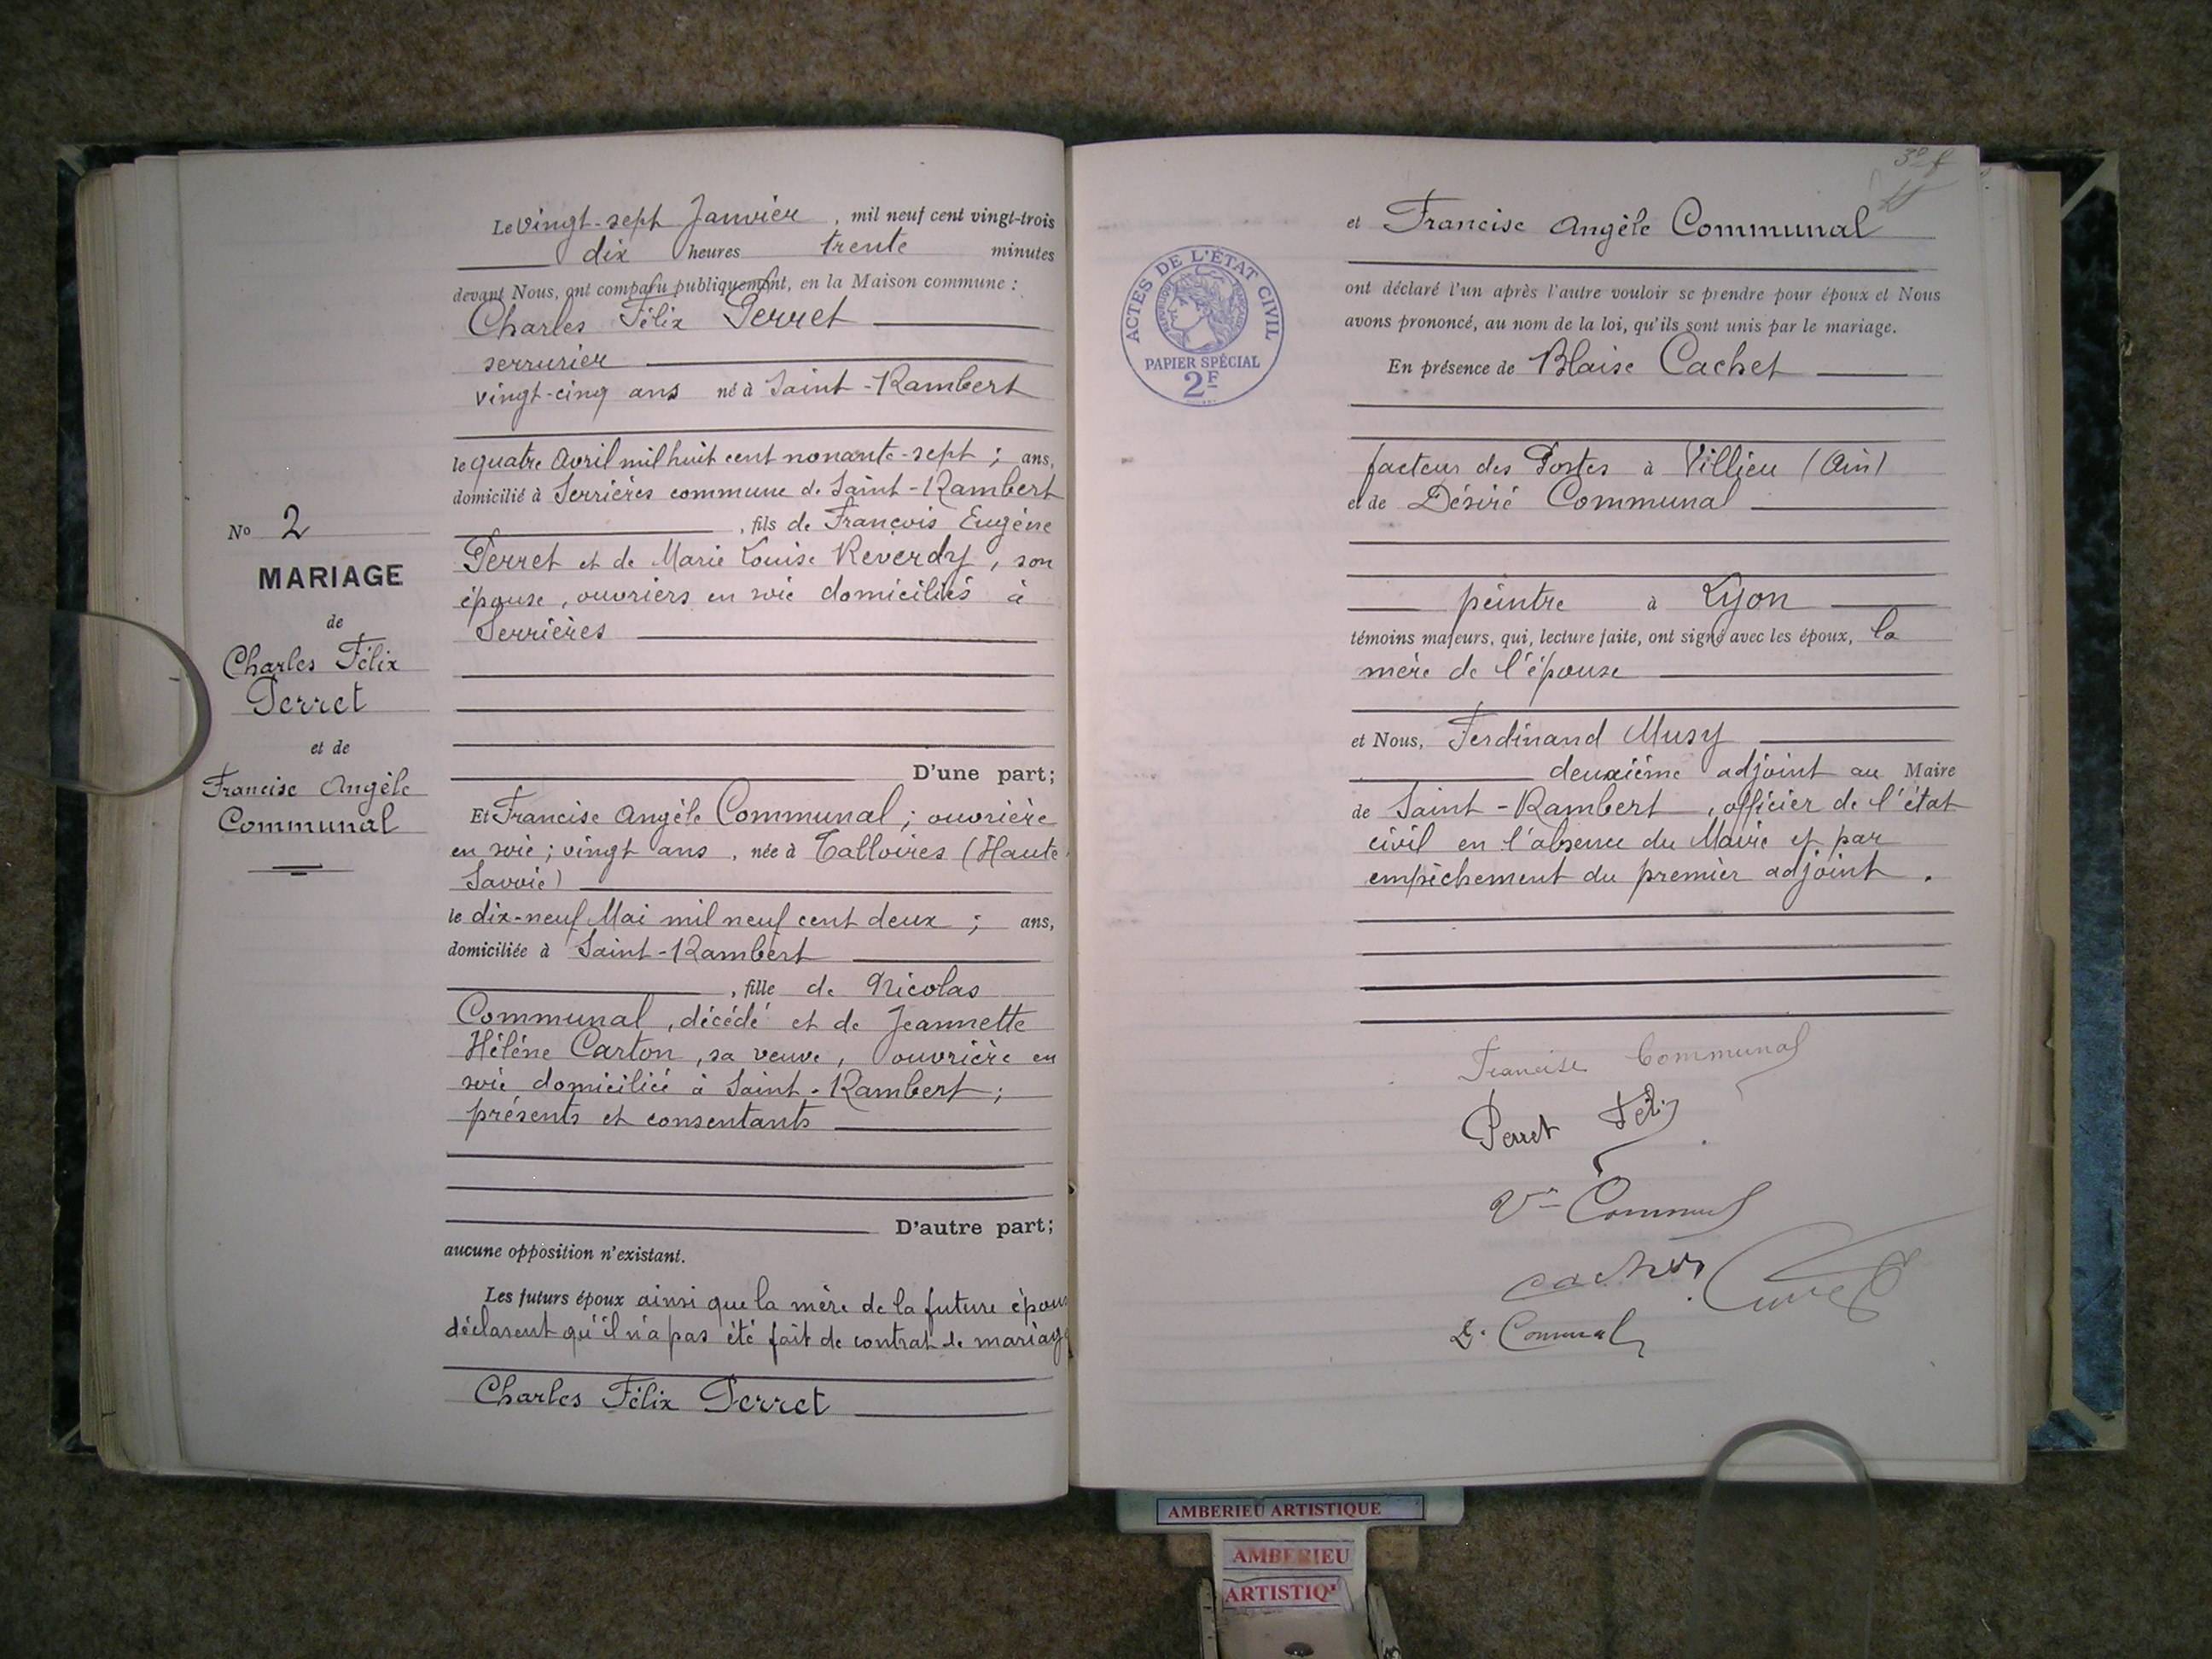 Le vingt-sept Janvier, mil neuf cent vingt-trois
dix heures trente minutes
devant Nous, ont comparu publiquement, en la Maison commune :
Charles Félix Perret
serrurier
vingt-cinq ans né à Saint-Rambert
le quatre Avril mil huit cent nonante-sept ; ans,
domicilié à Serrières commune de Saint-Rambert
, fils de François Eugène
Perret et de Marie Louise Reverdy, son
épouse, ouvriers en soie domiciliés à
Serrières
D'une part;
Et Francise Angèle Communal ; ouvrière
en soie ; vingt ans, née à Talloires (Haute
Savoie)
le dix-neuf Mai mil neuf cent deux ; ans,
domiciliée à Saint-Rambert
, fille de Nicolas
Communal, décédé et de Jeannette
Hélène Carton, sa veuve, ouvrière en
soie domiciliée à Saint-Rambert ;
présents et consentants
D'autre part;
aucune opposition n'existant.
Les futurs époux ainsi que la mère de la future épouse
déclarent qu'il n'a pas été fait de contrat de mariage
Charles Félix Perret
No 2
MARIAGE
de
Charles Félix
Perret
et de
Francise Angèle
Communal
et Francise Angèle Communal
ont déclaré l'un après l'autre vouloir se prendre pour époux et Nous
avons prononcé, au nom de la loi, qu'ils sont unis par le mariage.
En présence de Blaise Cachet
facteur des Postes à Villieu (Ain)
et de Désiré Communal
peintre à Lyon
témoins majeurs, qui, lecture faite, ont signé avec les époux, la
mère de l'épouse
et Nous, Ferdinand Musy
deuxième adjoint au Maire
de Saint-Rambert, officier de l'état
civil en l'absence du Maire et par
empêchement du premier adjoint.
Francise Communal
Perret Félix
Vve Communal
Cachet
D. Communal
ACTES DE L'ÉTAT CIVIL
RÉPUBLIQUE FRANÇAISE
PAPIER SPÉCIAL
2F
AMBERIEU ARTISTIQUE
AMBERIEU
ARTISTIQ